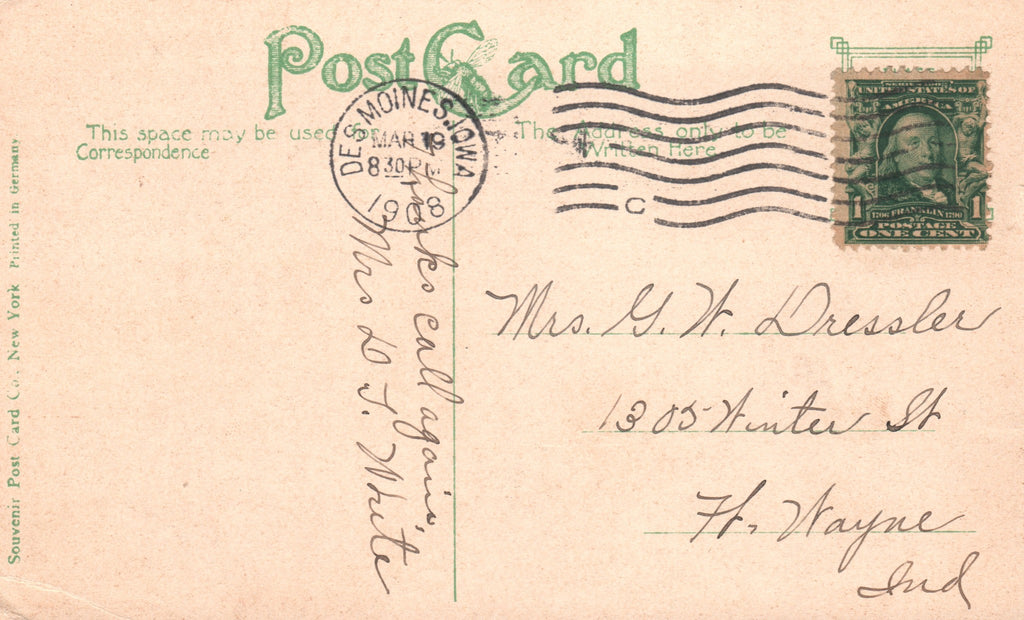 Post Card
This space may be used for
Correspondence
The Address only to be
Written Here
DES MOINES, IOWA
MAR 19
8 30 PM
1908
C
UNITED STATES OF
AMERICA
1 1
1706 FRANKLIN 1790
POSTAGE
ONE CENT
Thanks call again,
Mrs D. T. White
Mrs. G. W. Dressler
1305 Winter St
Ft. Wayne
Ind
Souvenir Post Card Co., New York Printed in Germany